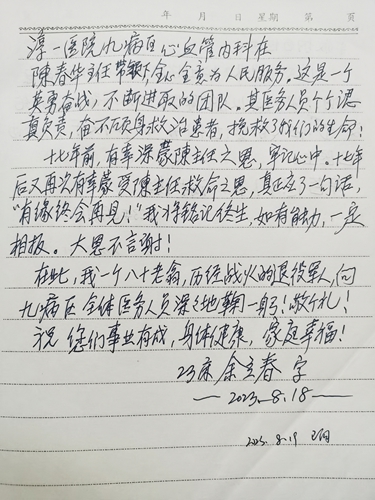 年 月 日 星期 第 页
淳一医院九病区心血管内科在
陈春华主任带领下全心全意为人民服务。这是一个
英勇奋战，不断进取的团队。其医务人员个个认
真负责，奋不顾身救治患者，挽救了我们的生命！
十七年前，有幸深蒙陈主任之恩，牢记心中。十七年
后又再次有幸蒙受陈主任救命之恩，真正应了一句话，
“有缘终会再见！”我将铭记终生，如有能力，一定
相报。大恩不言谢！
在此，我一个八十老翁，历经战火的退役军人，向
九病区全体医务人员深深地鞠一躬！敬个礼！
祝 您们事业有成，身体健康，家庭幸福！
23床 余立春 字
—2023.8.18—
2023.8.19